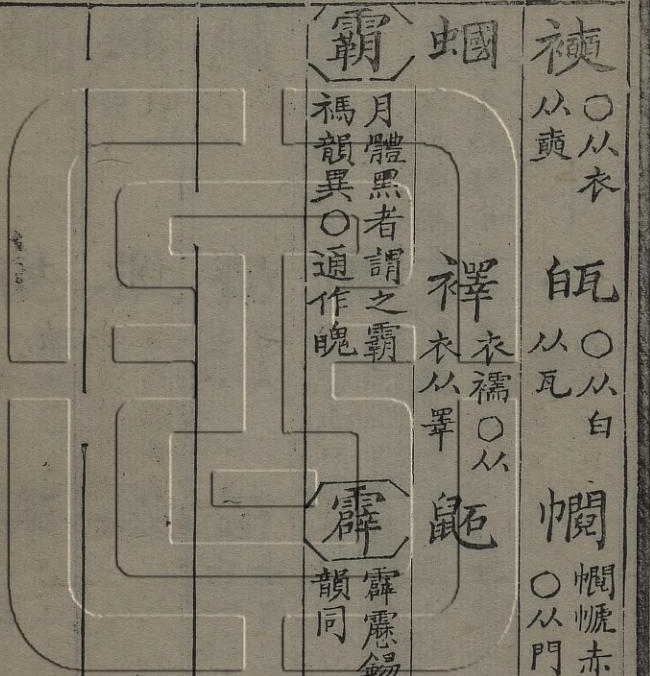 ○从衣
从
○从白
从瓦
赤
○从門
蟈
襗
衣襦○从
衣从睪
鼫
霸
月體黑者謂之霸
禡韻異○通作魄
霹
霹靂錫
韻同